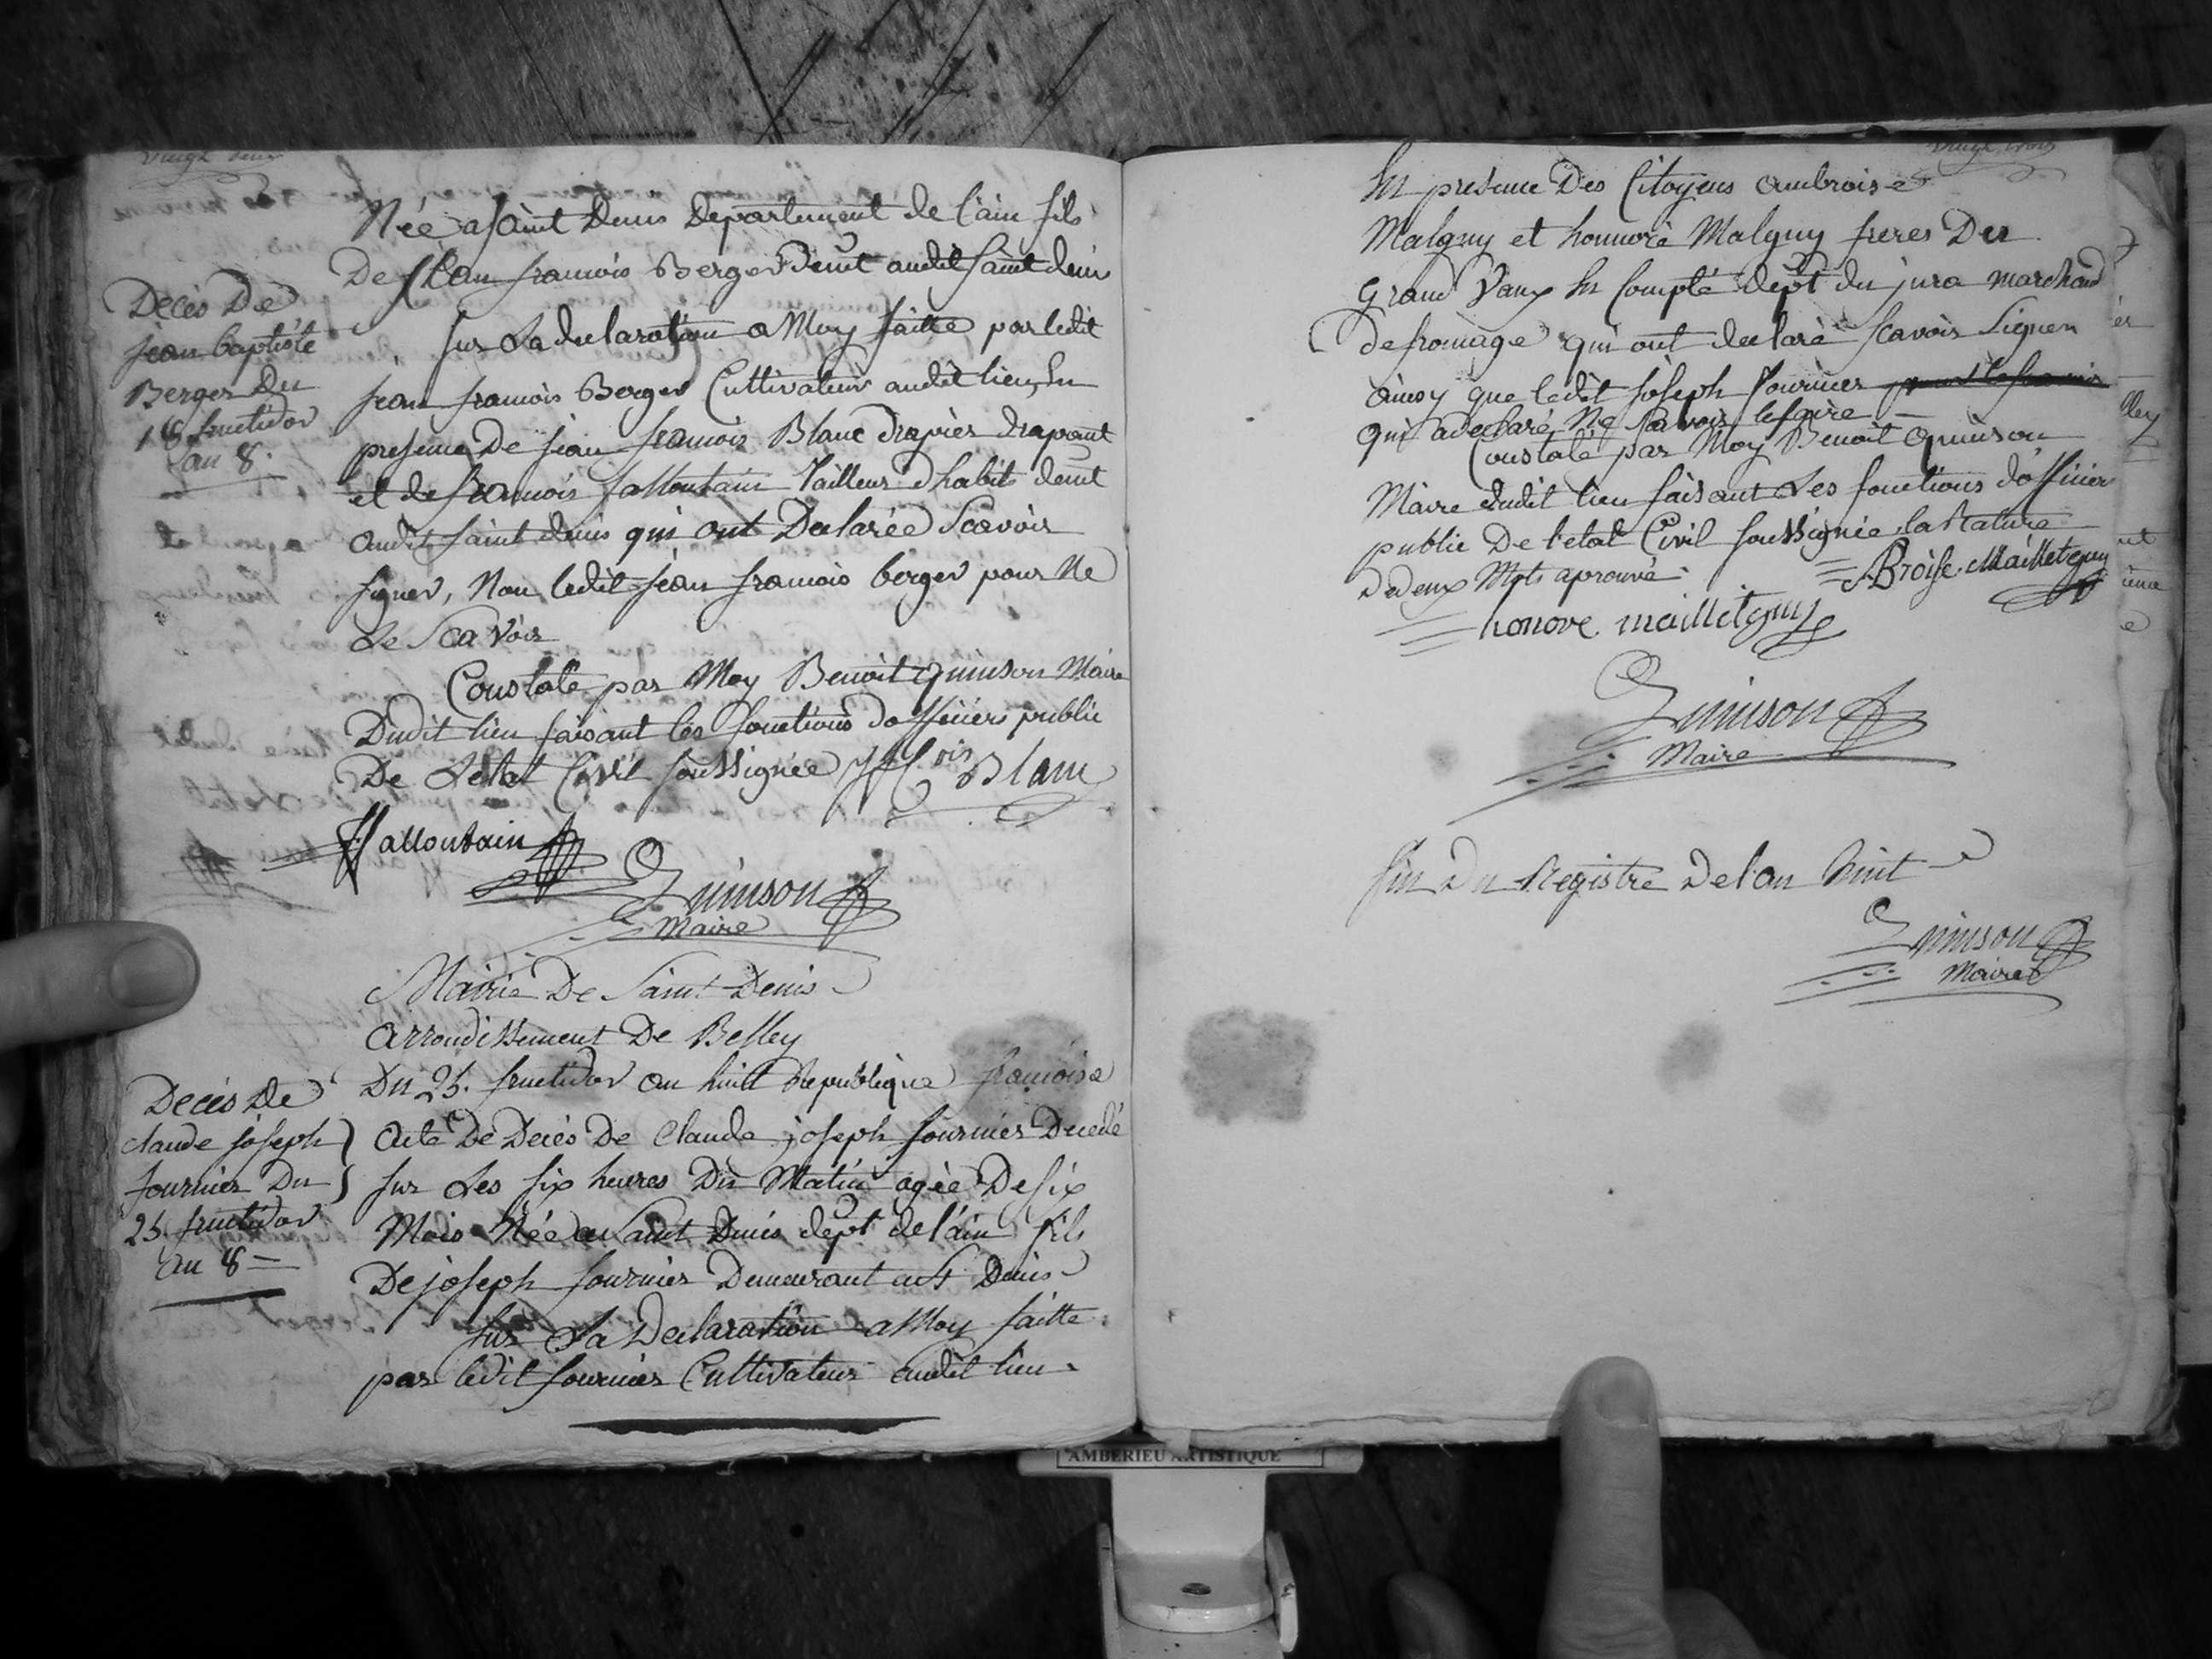 vingt deux
Née a saint Denis Departement de l'ain fils
De jean francois Berger Demt audit saint denis
Decès De
jean baptiste
Berger du
18 fructidor
an 8.
sur La declaration a Moy faitte par ledit
jean francois Berger Cultivateur audit lieu, En
presence De jean francois Blanc drapier drapant
et de francois fallloutain Tailleur d'habits demt
audit saint denis qui ont Declarée Scavoir
signer, Non ledit jean francois berger pour Ne
Le Scavoir
Constaté par Moy Benoit quinson Maire
Dudit lieu faisant les fonctions d'officier public
De L'etat Civil soussignée J fcois Blanc
Quinson
Maire
Mairie De Saint Denis
Arrondissement De Belley
Du 25. fructidor an huit Republique francoise
Decès de
claude joseph
fournier Du
25. fructidor
an 8
Acte De Decès De Claude joseph fournier Decedé
sur Les six heures Du Matin agée De six
Mois Née a Saint Denis dept de l'ain fils
De joseph fournier Demeurant a St Denis
sur La Declaration a Moy faitte
par ledit fournier Cultivateur audit lieu
vingt trois
En presence Des Citoyens ambroise
Malguy et honnoré Malguy freres Der
Grand Vaux En Compté dept du jura marchand
de fromage qui ont declaré scavoir signer
ainsy que ledit joseph fournier
qui a declaré Ne scavoir le faire
Constaté par Moy Benoit Quinson
Maire dudit lieu faisant Les fonctions d'officier
public De l'etat Civil soussignée la Rature
De deux Mots aprouvé
ABroise Mailletguy
honore mailletguy
Quinson
Maire
fin Du Registre De l'an huit
Quinson
Maire
AMBERIEU ARTISTIQUE